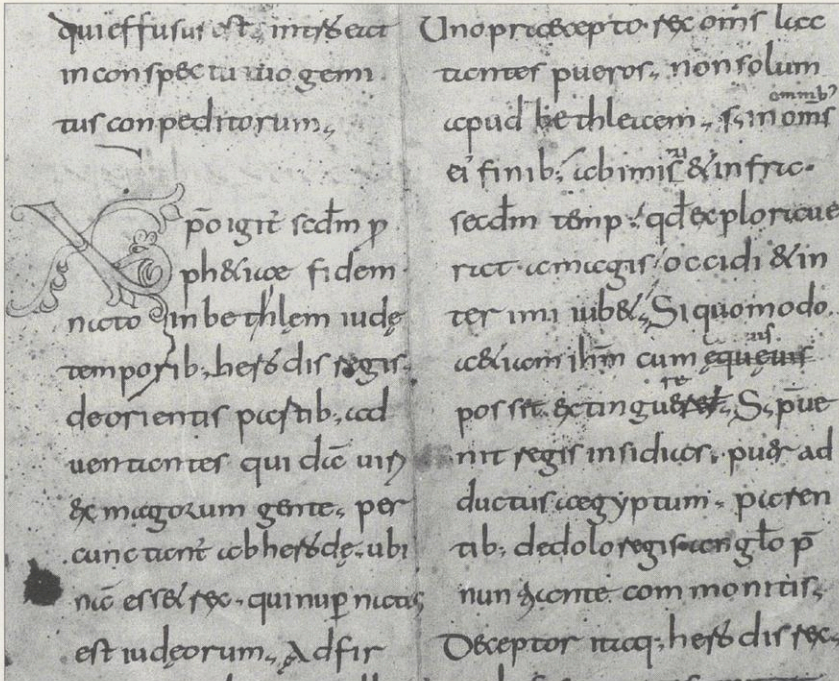 qui effusus est, introeat
in conspectu tuo gemi
tus conpeditorum,
Xp̄o igit̄ secdm̄ p
phetiae fidem
nato in bethlem iudę
temporib; herodis regis
de orientis partib; ad
uentantes quidā uiri
ex magorum gente, per
cunctant̄ ab herodę, ubi
nā esset rex, qui nup̄ natus
est iudęorum, Adfir
Uno praecepto rex om̄s lac
tantes pueros, non solum
apud bethleaem, s; in om̄s
ommb;
ei finib; a bimis & infra
secdm̄ temp; qd̄ explora
rat a magis occidi & in
terimi iub&, Si quomodo
&iam ih̄m cum
poss&, extinguere, S; p̄ue
nit regis insidias, puer ad
ductus aegyptum, paren
tib; de dolo regis anglo p̄
nunciante commonitis,
Deceptor itaq; herodis rex